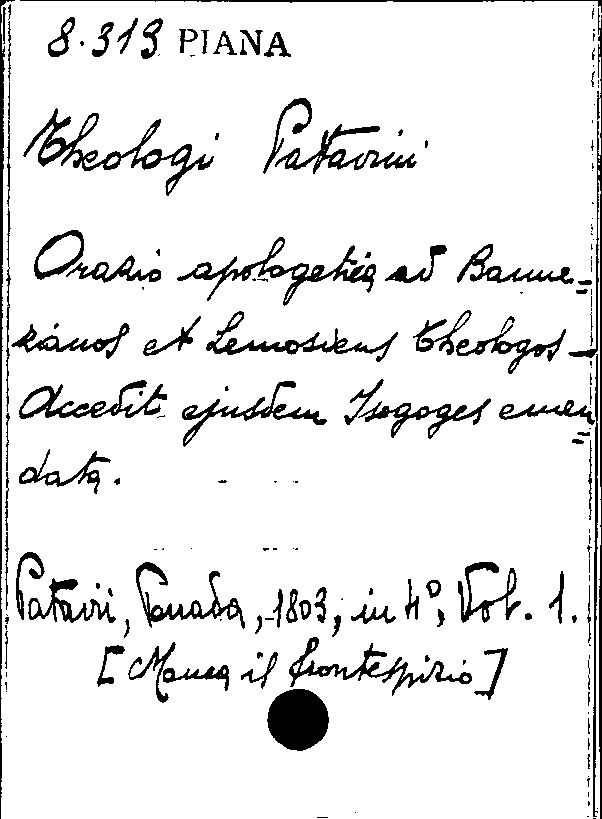 8.319 PIANA
Theologi Patavini
Orazio apologetica ad Banne=
zianos et Lemosiens Theologos —
Accedit ejusdem Isagoges emen
=
data.
Patavii, Penada, 1803, in 4°, Vol. 1.
[Manca il frontespizio]